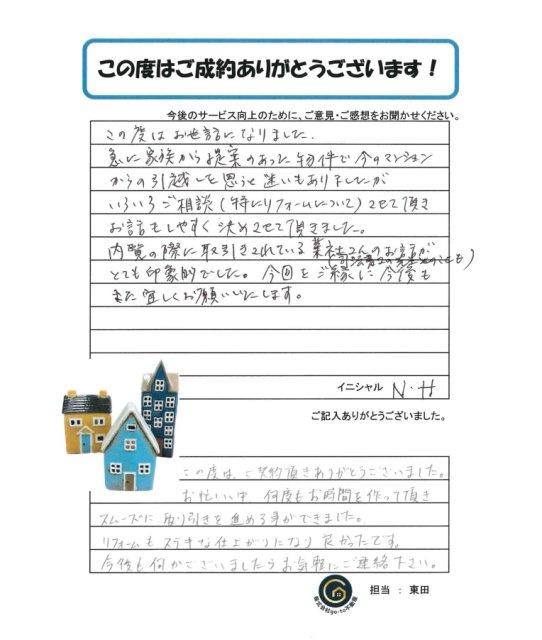 この度はご成約ありがとうございます！
今後のサービス向上のために、ご意見・ご感想をお聞かせください。
この度はお世話になりました.
急に家族から提案のあった物件で今のマンション
からの引越しを思うと迷いもありましたが
いろいろご相談(特にリフォームについて)させて頂き
お話もしやすく決めさせて頂きました。
内覧の際に取引きされている業社さんのお話が
(司法書士の先生のことも)
とても印象的でした。今回をご縁に今後も
また宜しくお願いいたします。
イニシャル N・H
ご記入ありがとうございました。
この度は、ご契約頂きありがとうございました。
お忙しい中 何度もお時間を作って頂き
スムーズに取り引きを進める事ができました。
リフォームもステキな仕上がりになり良かったです。
今後も何かございましたらお気軽にご連絡下さい。
株式会社go-to不動産
担当 ： 東田